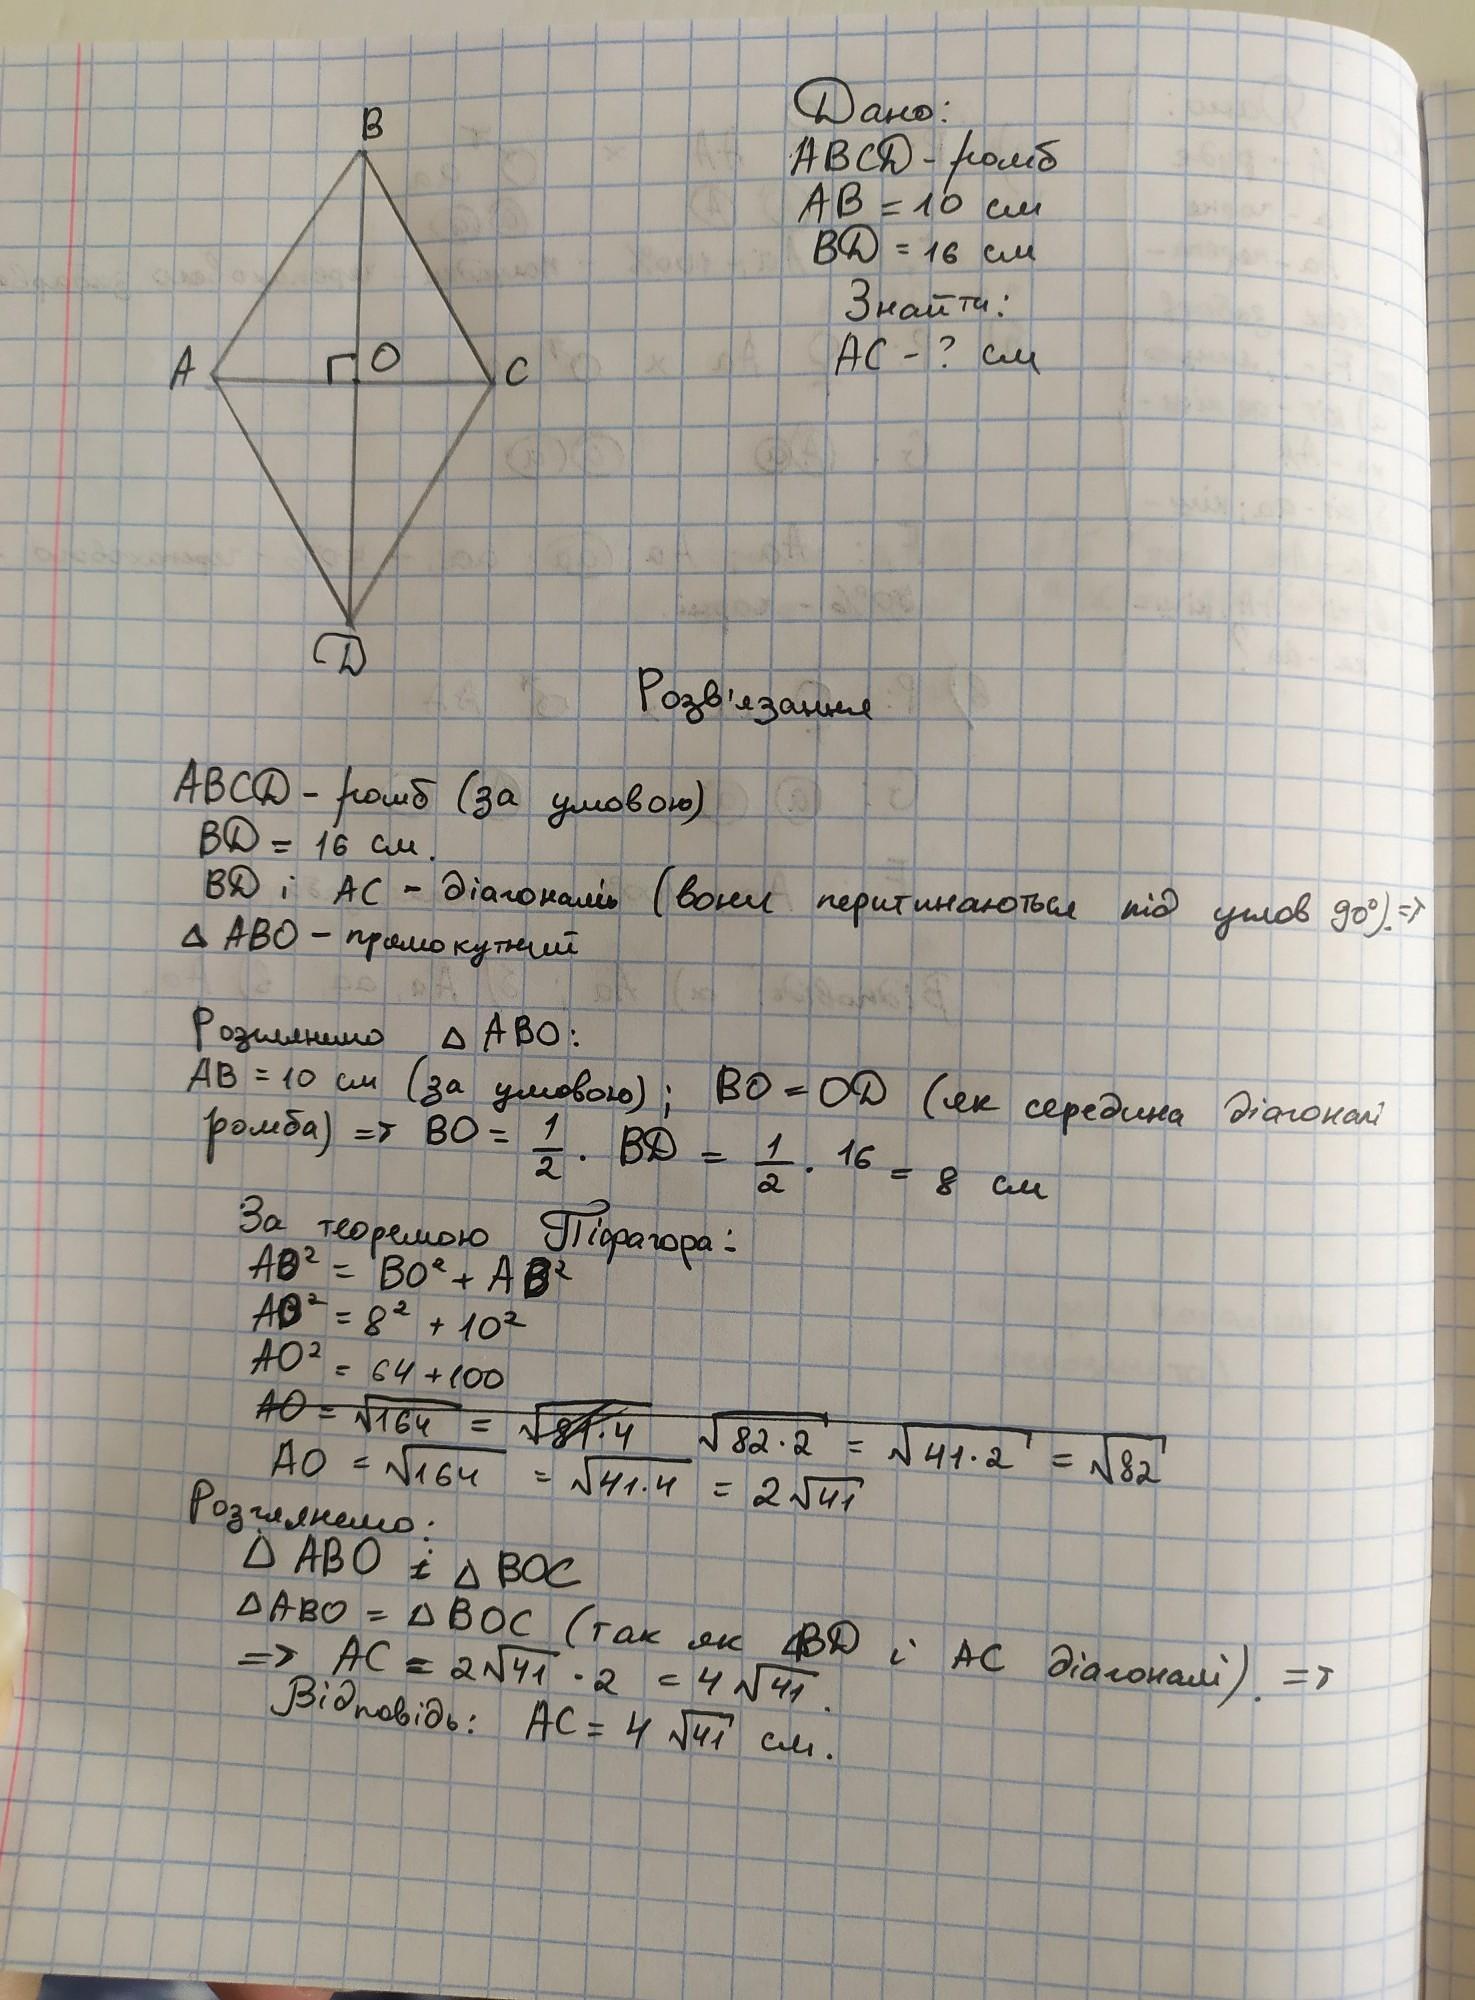 B
A
O
C
D
Дано:
ABCD - ромб
AB = 10 см
BD = 16 см
Знайти:
AC - ? см
Розв'язання
ABCD - ромб (за умовою)
BD = 16 см.
BD і AC - діагоналі (вони перитинаються під углов 90°). =>
△ ABO - прямокутний
Розглянемо △ ABO:
AB = 10 см (за умовою); BO = OD (як середина діагоналі
ромба) => BO = 1/2 · BD = 1/2 · 16 = 8 см
За теоремою Піфагора:
AO² = BO² + AB²
AO² = 8² + 10²
AO² = 64 + 100
AO = √164 = √81·4 √82·2 = √41·2 = √82
AO = √164 = √41·4 = 2√41
Розглянемо:
△ ABO і △ BOC
△ABO = △ BOC (так як BD і AC діагоналі). =>
=> AC = 2√41 · 2 = 4√41.
Відповідь: AC = 4√41 см.